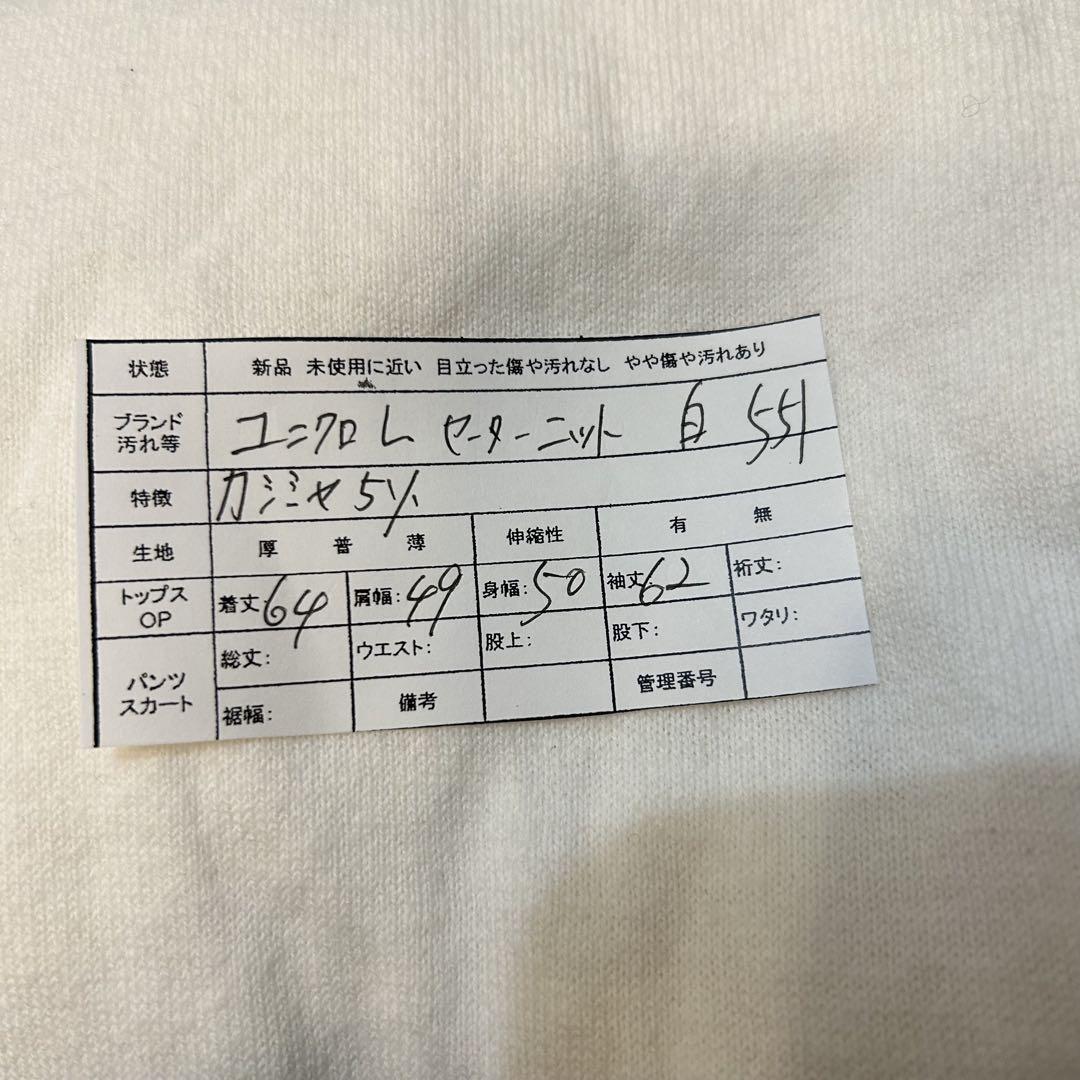 状態 新品 未使用に近い 目立った傷や汚れなし やや傷や汚れあり
ブランド 汚れ等 ユニクロ L セーターニット 白 551
特徴 カシミヤ 5%
生地 厚 普 薄 伸縮性 有 無
トップス OP 着丈:64 肩幅:49 身幅:50 袖丈:62 裄丈:
パンツ スカート 総丈: ウエスト: 股上: 股下: ワタリ:
裾幅: 備考 管理番号